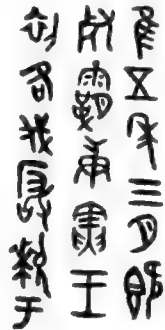 隹五年三月既
死霸庚寅王
初各伐厰𤞤于